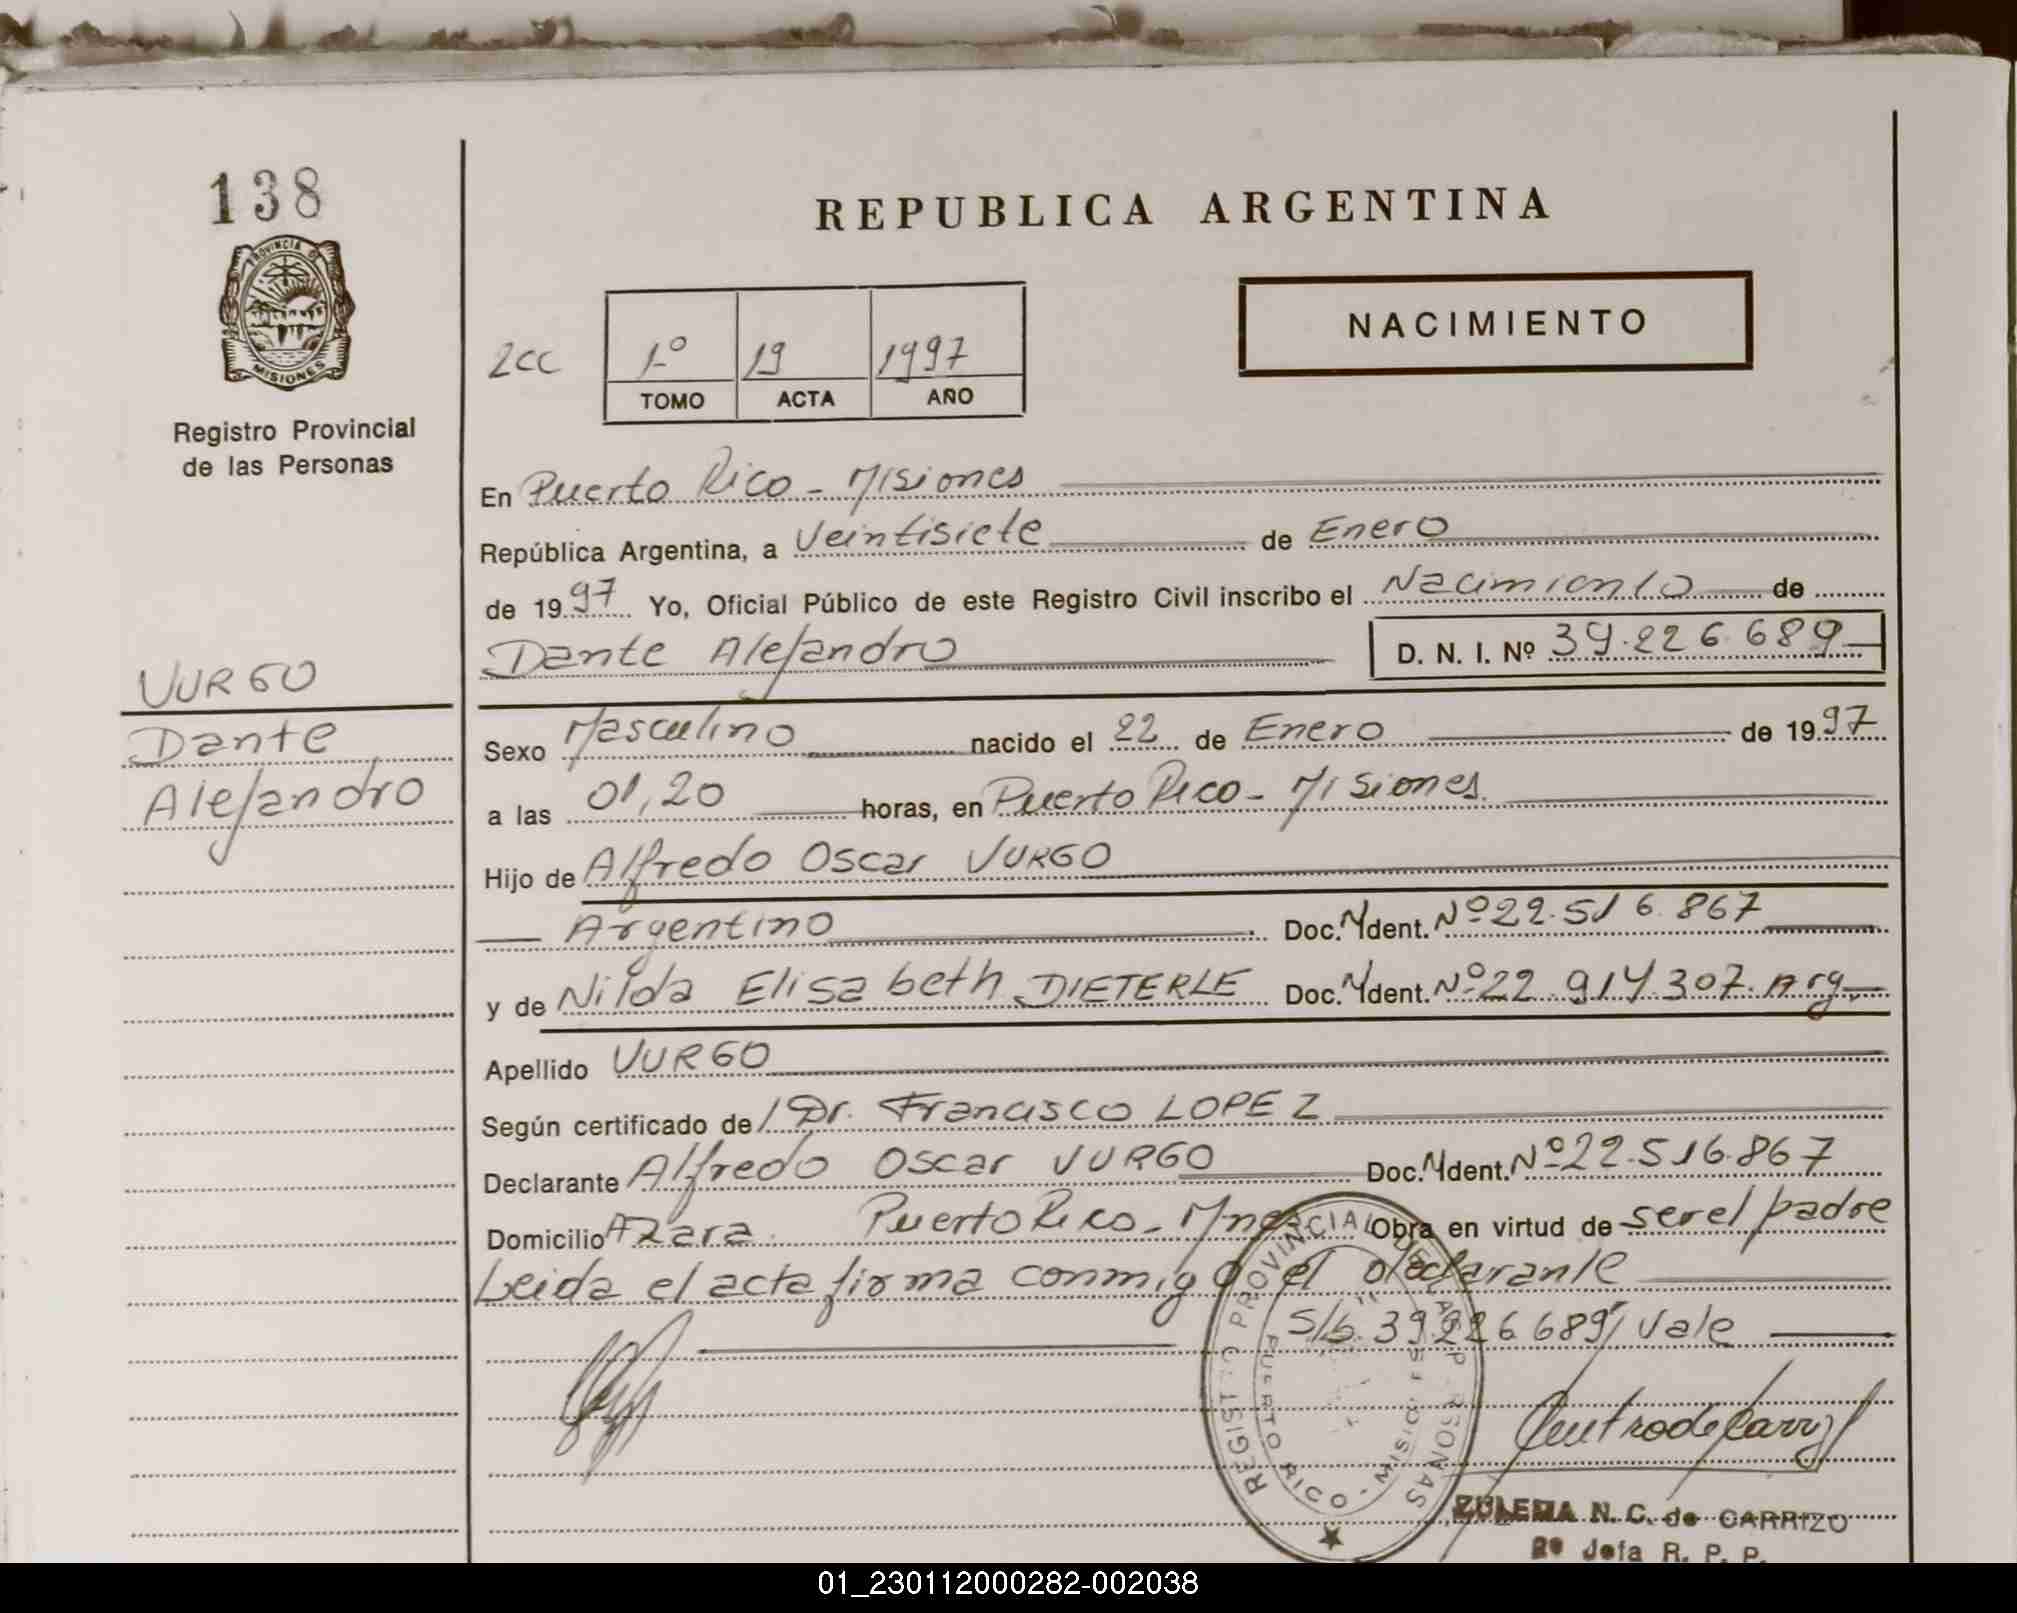 138
PROVINCIA DE
MISIONES
Registro Provincial
de las Personas
REPUBLICA ARGENTINA
NACIMIENTO
2cc
1º 19 1997
TOMO ACTA AÑO
En Puerto Rico - Misiones
República Argentina, a Veintisiete de Enero
de 1997 Yo, Oficial Público de este Registro Civil inscribo el Nacimiento de
Dante Alejandro D. N. I. Nº 39.226.689
VURGO
Dante
Alejandro
Sexo Masculino nacido el 22 de Enero de 1997
a las 01,20 horas, en Puerto Rico - Misiones.
Hijo de Alfredo Oscar VURGO
Argentino Doc. Ident. Nº 22.516.867
y de Nilda Elisabeth DIETERLE Doc. Ident. Nº 22.914.307. Arg.
Apellido VURGO
Según certificado de Dr. Francisco LOPEZ
Declarante Alfredo Oscar VURGO Doc. Ident. Nº 22.516.867
Domicilio Azara. Puerto Rico - Mnes Obra en virtud de ser el padre
Leida el acta firma conmigo el declarante
S/b. "39.226.689" Vale
REGISTRO PROVINCIAL DE LAS PERSONAS
PUERTO RICO - MISIONES
ZULEMA N. C. de CARRIZO
2º Jefa R. P. P.
01_230112000282-002038